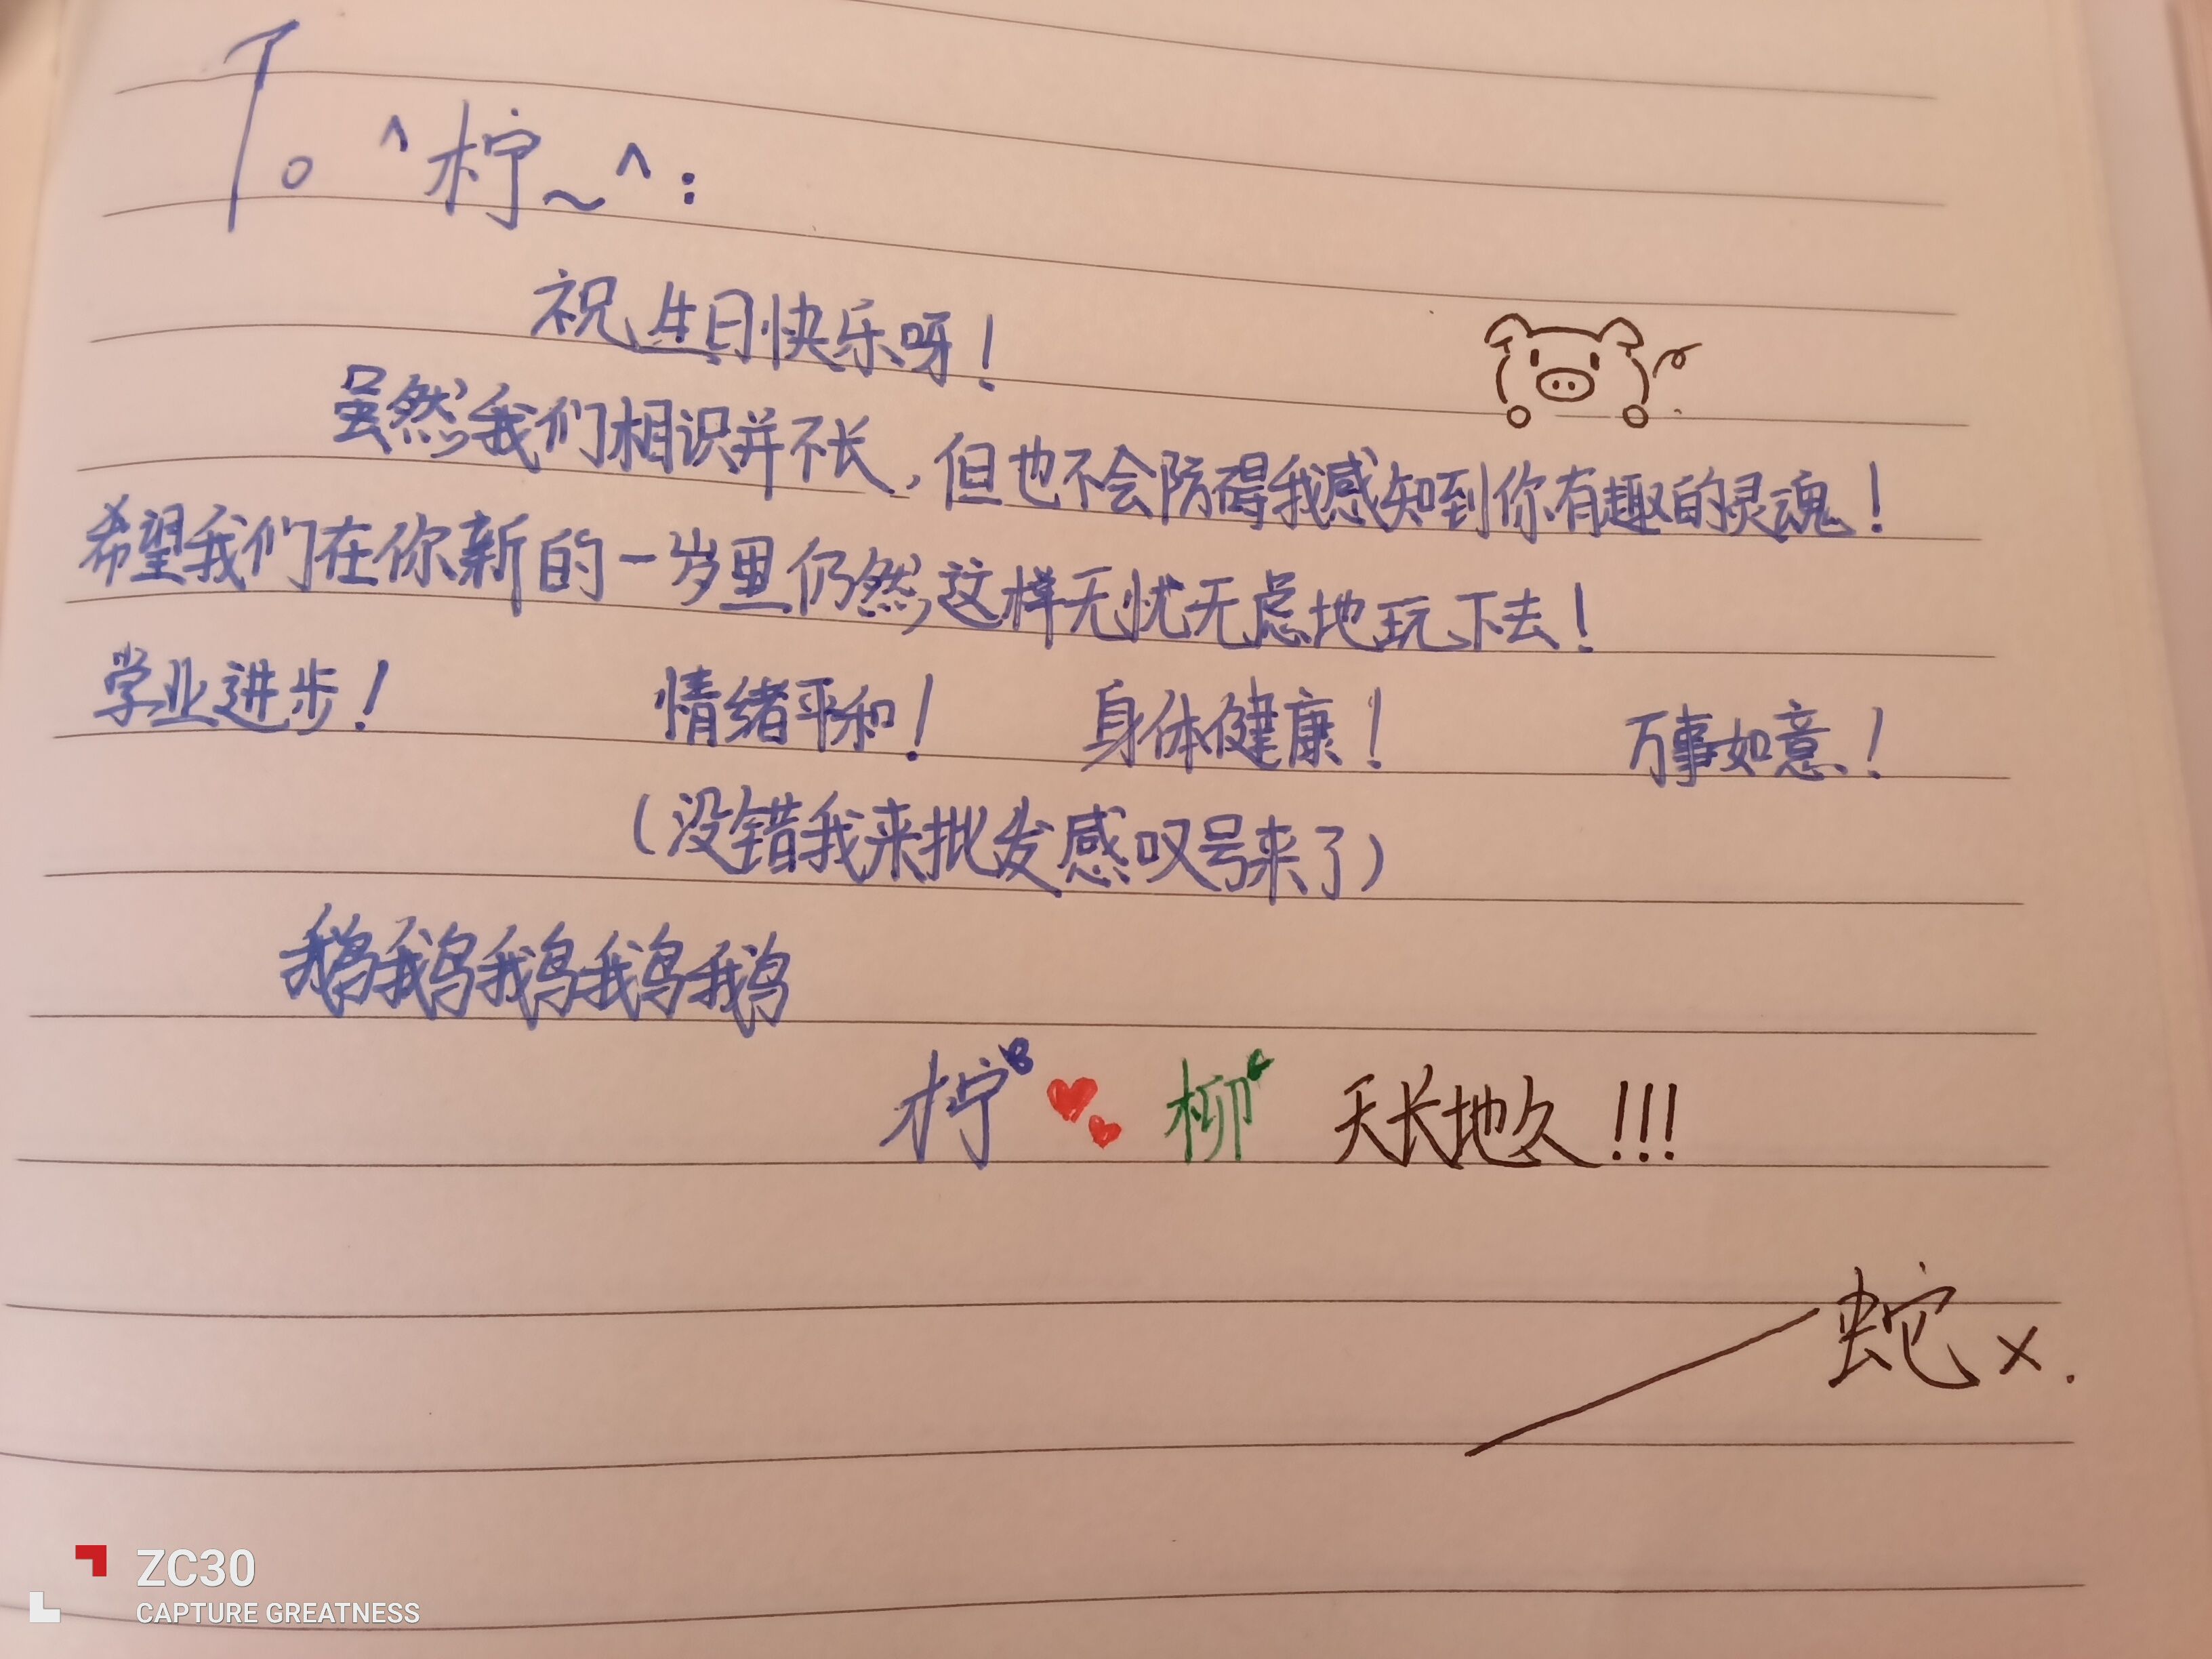 To ^柠~^:
祝生日快乐呀!
虽然我们相识并不长,但也不会防碍我感知到你有趣的灵魂!
希望我们在你新的一岁里仍然这样无忧无虑地玩下去!
学业进步! 情绪平和! 身体健康! 万事如意!
(没错我来批发感叹号来了)
鹅鹅鹅鹅鹅
柠 柳 天长地久!!!
蛇x.
ZC30
CAPTURE GREATNESS